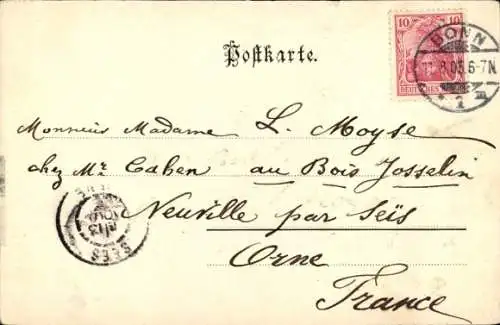 10 10
DEUTSCHES
BONN
11.8.05.6-7N.
* 1 m
Postkarte.
Monsieur Madame L. Moyse
chez Mr Cahen au Bois Josselin
Neuville par Seïs
Orne
France
SEES
13
AOUT